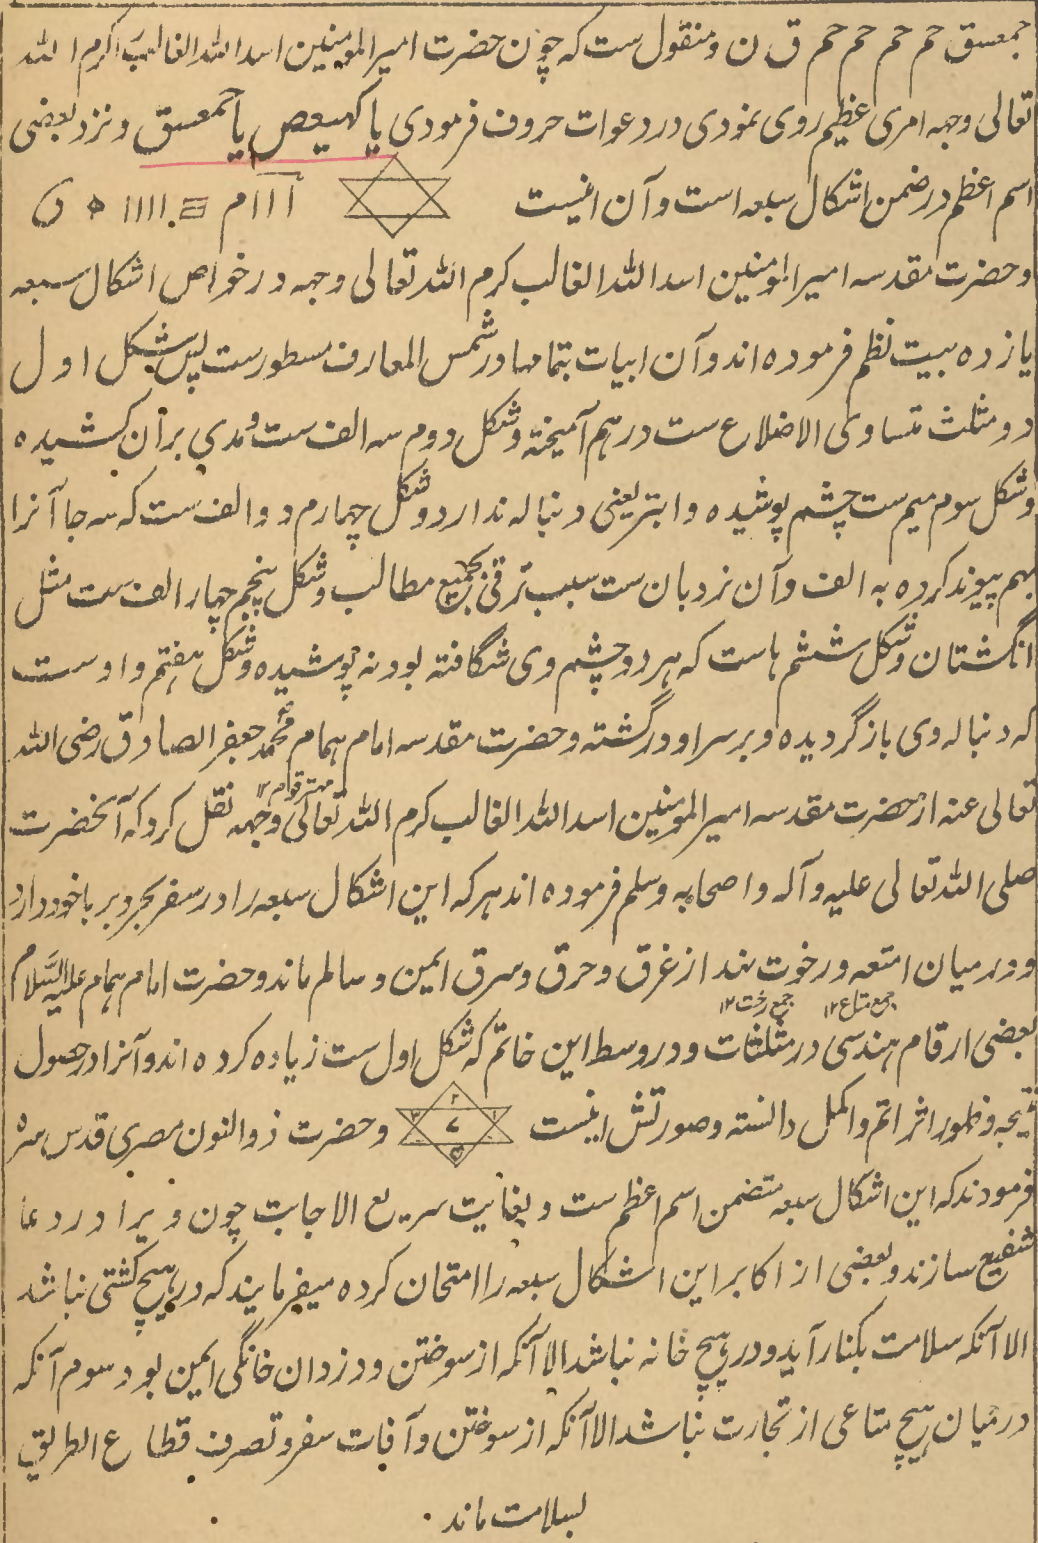 حمعسق حم حم حم حم ق ن و منقول ست که چون حضرت امیر المومنین اسد الله الغالب اکرم الله
تعالی وجهه امری عظیم روی نمودی در دعوات حروف فرمودی یا کهیعص یا حمعسق و نزد بعضی
اسم اعظم در ضمن اشکال سبعه است و آن اینست
وحضرت مقدسه امیر المومنین اسد الله الغالب کرم الله تعالی وجهه در خواص اشکال سبعه
یازده بیت نظم فرموده اند و آن ابیات بتمامها در شمس المعارف مسطورست پس شکل اول
دو مثلث متساوی الاضلاع ست درهم آمیخته و شکل دوم سه الف ست و مدی بر آن کشیده
و شکل سوم میم ست چشم پوشیده و ابتر یعنی دنباله ندارد و شکل چهارم دو الف ست که سه جا آنرا
بهم پیوند کرده به الف و آن نردبان ست سبب ترقی بجمیع مطالب و شکل پنجم چهار الف ست مثل
انگشتان و شکل ششم ها ست که هر دو چشم وی شگافته بود نه پوشیده و شکل هفتم واو ست
که دنباله وی باز گردیده و بر سر او در گشته و حضرت مقدسه امام همام محمد جعفر الصادق رضی الله
تعالی عنه از حضرت مقدسه امیر المومنین اسد الله الغالب کرم الله تعالی وجهه نقل کرد که آنحضرت
صلی الله تعالی علیه و آله و اصحابه وسلم فرموده اند هر که این اشکال سبعه را در سفر بحر و بر با خود دارد
و در میان امتعه و رخوت نهد از غرق و حرق و سرق ایمن و سالم ماند و حضرت امام همام علیه السلام
جمع متاع ۱۲ جمع رخت ۱۲
بعضی ارقام هندسی در مثلثات و در وسط این خاتم که شکل اول ست زیاده کرده اند و آنرا در حصول
نتیجه و ظهور اثر اتم و اکمل دانسته و صورتش اینست ۲ ۱ ۳ ۷ ۵ و حضرت ذو النون مصری قدس سره
فرمودند که این اشکال سبعه متضمن اسم اعظم ست و بغایت سریع الاجابت چون ویرا در دعا
شفیع سازند و بعضی از اکابر این اشکال سبعه را امتحان کرده میفرمایند که در هیچ کشتی نباشد
الا آنکه سلامت بکنار آید و در هیچ خانه نباشد الا آنکه از سوختن و دزدان خانگی ایمن بود سوم آنکه
درمیان هیچ متاعی از تجارت نباشد الا آنکه از سوختن و آفات سفر و تصرف قطاع الطریق
بسلامت ماند